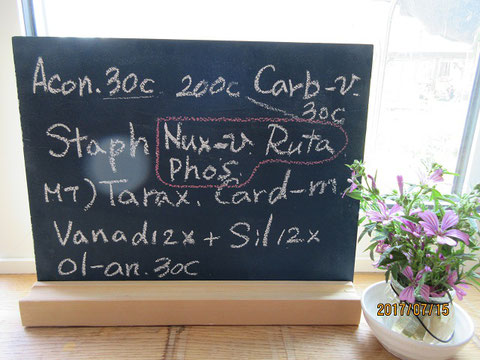 Acon. 30c 200c Carb-v.
30c
Staph Nux-v. Ruta
Phos.
MT) Tarax. Card-m.
Vanad12x + Sil12x
Ol-an. 30c
2017/07/15